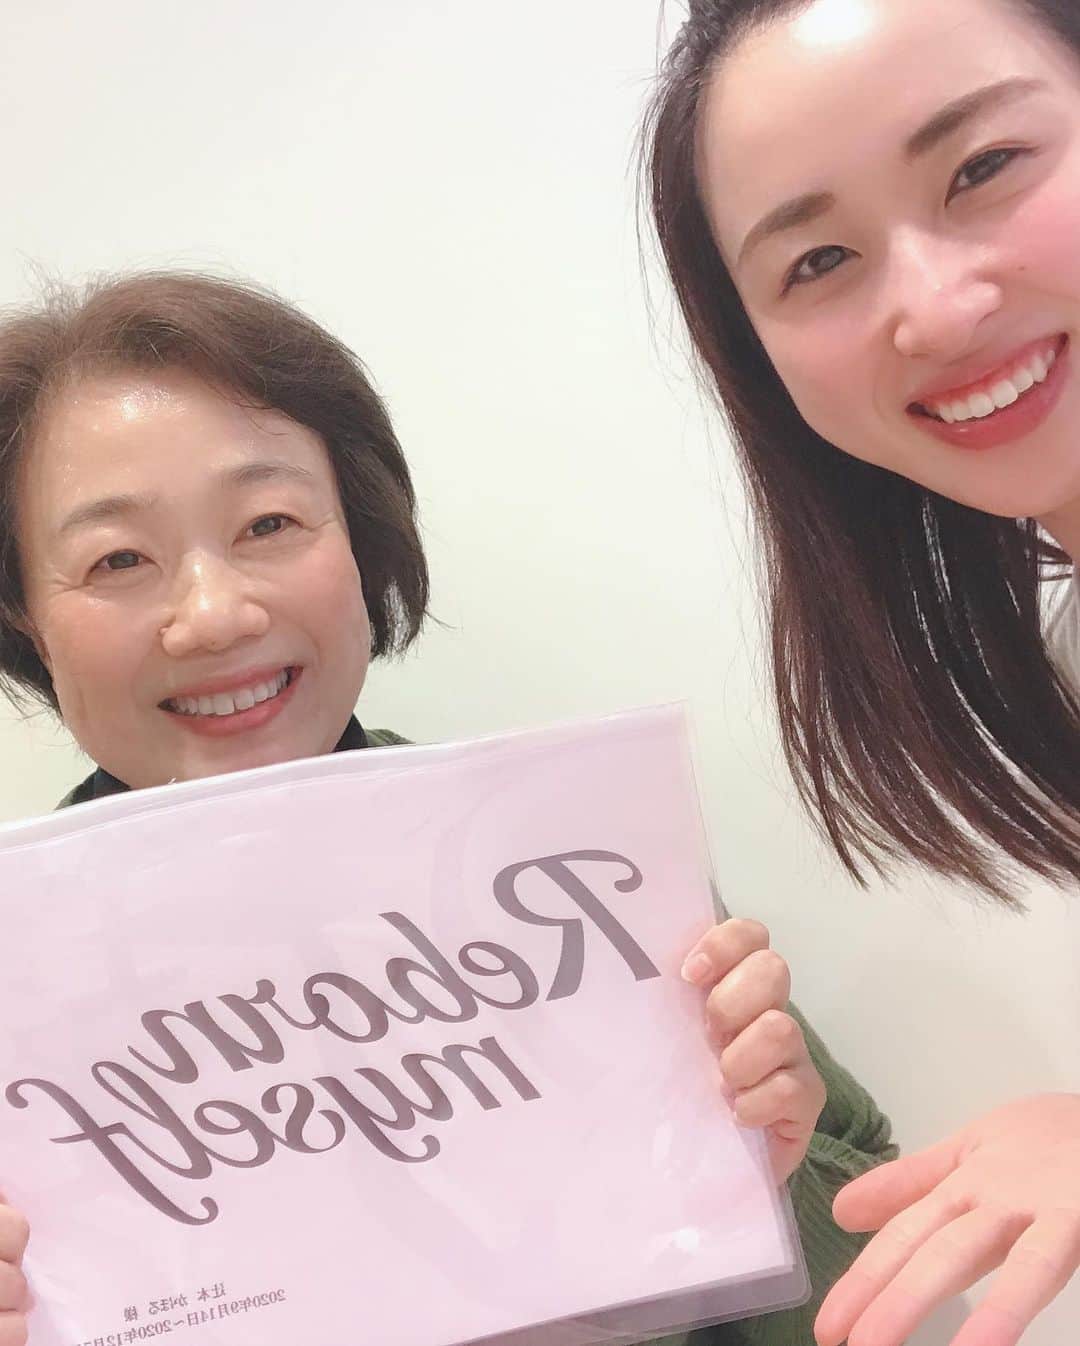 Reborn
myself
辻本 かほる 様
2020年9月14日~2020年12月